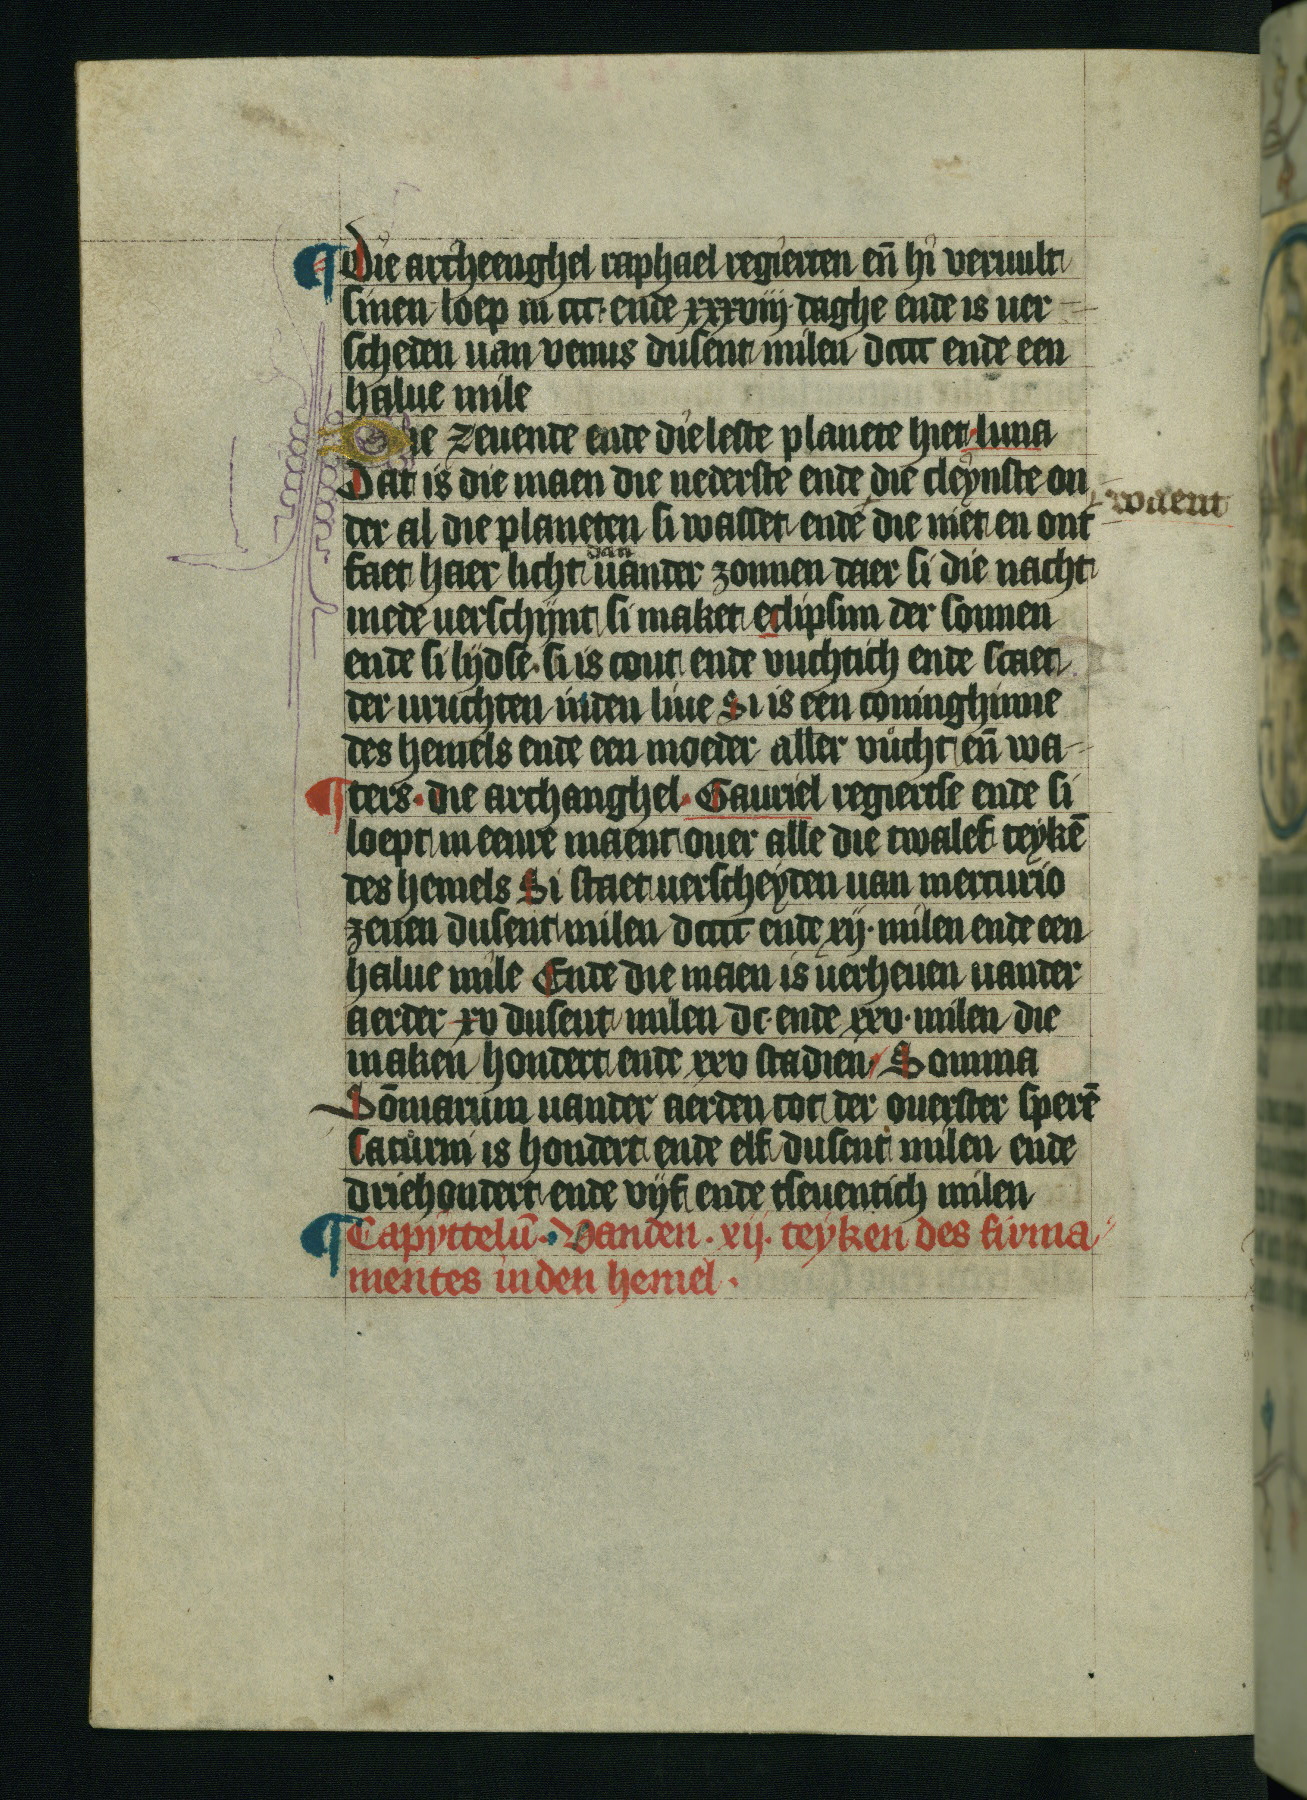 ¶ Die archeenghel raphael regierten en̄ hi veruult
sinen loep in ccc· ende xxxviij· daghe ende is uer
scheden uan venus dusent milen dccc ende een
halue mile
Die zeuende ende die leste planete hiet luna
Dat is die maen die nederste ende die cleynste on
der al die planeten si wasset ende die niet en ont
waent
faet haer licht dan uander zonnen daer si die nacht
mede uerschijnt si maket eclipsim der sonnen
ende si lijdse· si is cout ende vuchtich ende staet
der uruchten inden liue Si is een coninghinne
des hemels ende een moeder aller vucht en̄ wa
¶ ters· die archanghel· Gauriel regiertse ende si
loept in eenre maent ouer alle die twalef teykē
des hemels Si staet uerscheyden uan mercurio
zeuen dusent milen dccc ende xij· milen ende een
halue mile Ende die maen is uerheuen uander
aerder xv dusent milen dc· ende xxv· milen die
maken hondert ende xxv stadien· Somma
Sōmarum uander aerden tot der ouerster sperē
Saturni is hondert ende elf dusent milen ende
driehondert ende vijf ende tseuentich milen
¶ Capyttelū· Vanden· xij· teyken des firma
mentes inden hemel·